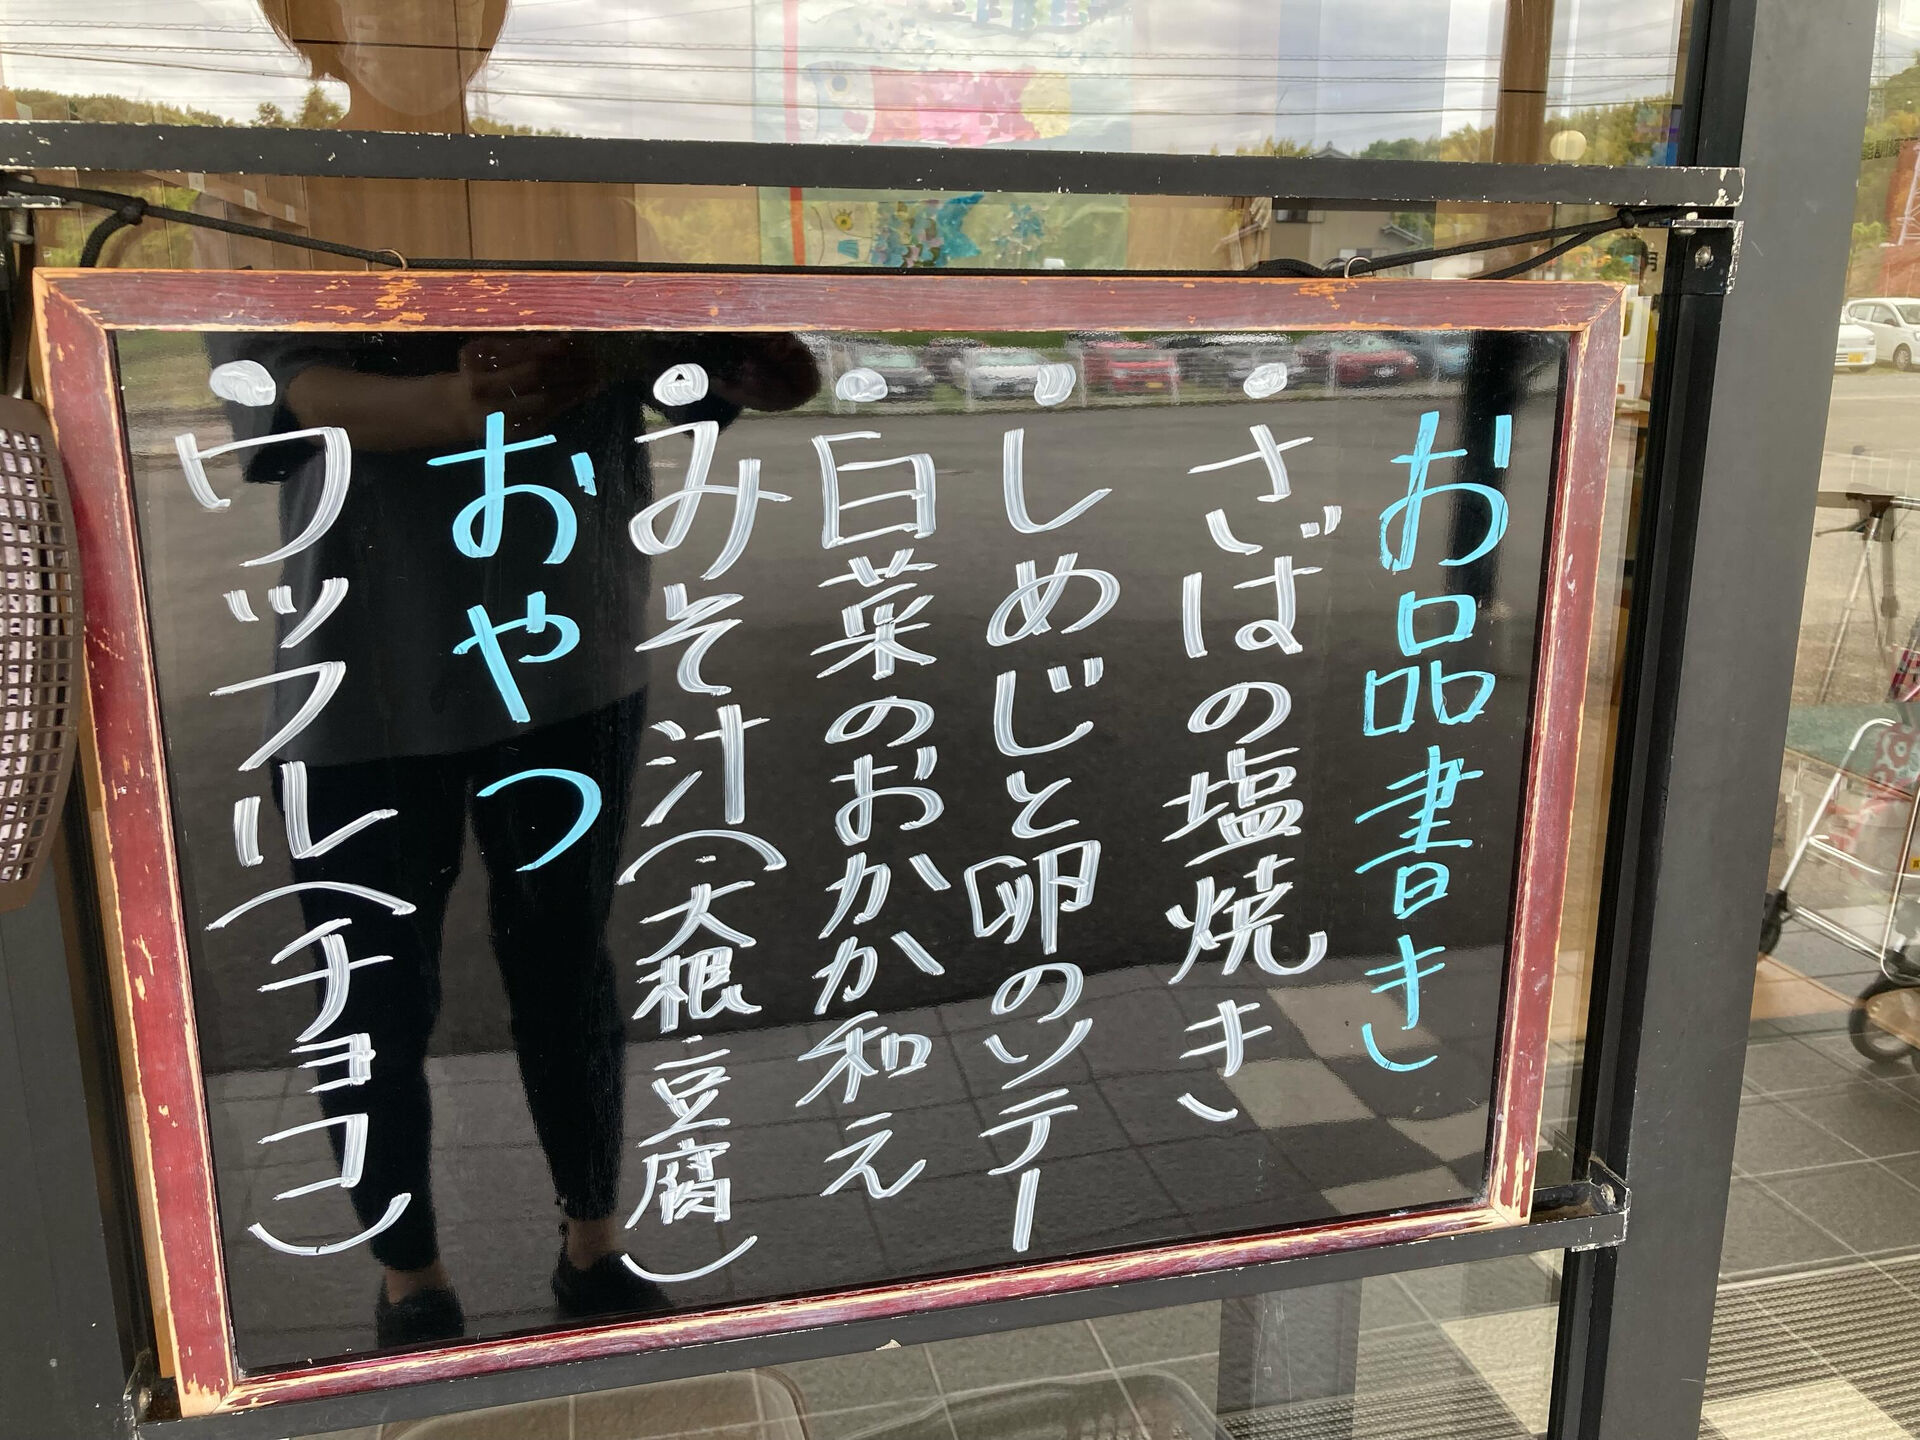 お品書き
・さばの塩焼き
・しめじと卵のソテー
・白菜のおかか和え
・みそ汁(大根・豆腐)
おやつ
・ワッフル(チョコ)